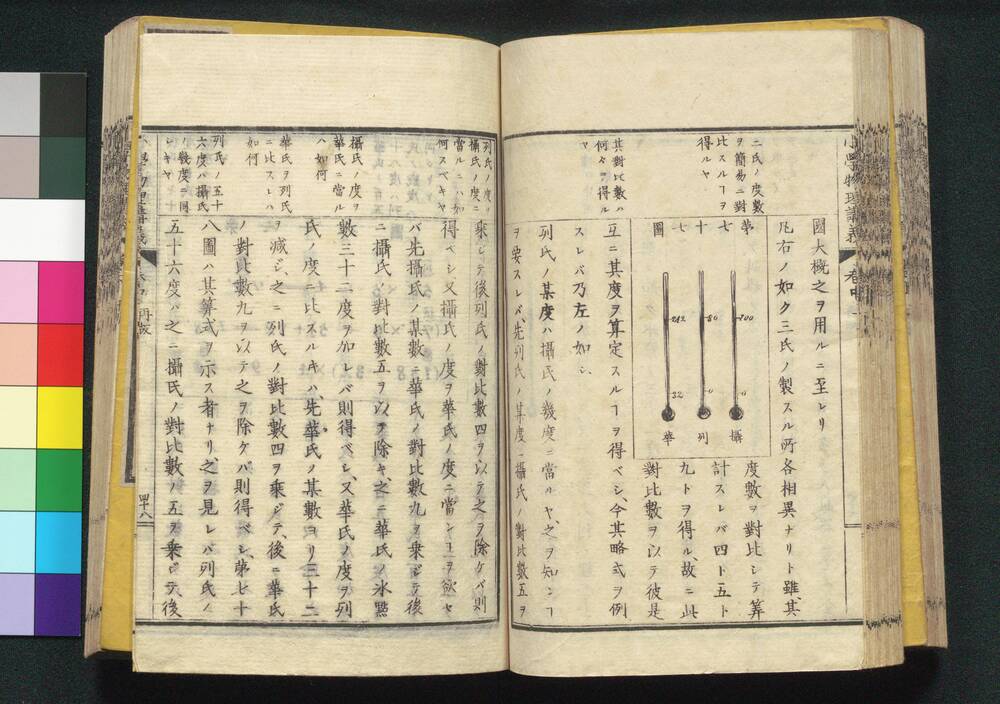 小學物理講義
卷中
二氏ノ度數
ヲ簡易ニ對
比スルヿヲ
得ルヤ
其對比數ハ
何々ヲ得ル
ヤ
國大概之ヲ用ルニ至レリ
凡右ノ如ク三氏ノ製スル所各相異ナリト雖、其
第
七
十
七
圖
100
80
212
0
0
32
攝
列
華
度數ヲ對比シテ筭
計スレバ四ト五ト
九トヲ得ル、故ニ此
對比數ヲ以テ彼是
互ニ其度ヲ算定スルヿヲ得ベシ、今其略式ヲ例
スレバ乃左ノ如シ
列氏ノ某度ハ攝氏ノ幾度ニ當ルヤ、之ヲ知ンヿ
ヲ要スレバ、先列氏ノ某度ニ攝氏ノ對比數五ヲ
列氏ノ度ノ
攝氏ノ度ニ
當ルニハ如
何スベキヤ
攝氏ノ度ヲ
華氏ニ當ル
ハ如何
華氏ヲ列氏
ニ比スルハ
如何
列氏ノ五十
六度ハ攝氏
ノ幾度ニ同
シキヤ
乘シテ後列氏ノ對比數四ヲ以テ之ヲ除ケバ則
得ベシ又攝氏ノ度ヲ華氏ノ度ニ當ンヿヲ欲セ
バ先攝氏ノ某數ニ華氏ノ對比數九ヲ乘シテ後
ニ攝氏ノ對比數五ヲ以テ除キ、之ニ華氏ノ氷點
數三十二度ヲ加レバ則得ベシ、又華氏ノ度ヲ列
氏ノ度ニ比スルキハ、先華氏ノ某數ヨリ三十二
ヲ減シ、之ニ列氏ノ對比數四ヲ乘シテ、後ニ華氏
ノ對比數九ヲ以テ之ヲ除ケバ則得ベシ、第七十
八圖ハ其筭式ヲ示ス者ナリ之ヲ見レバ列氏ノ
五十六度ハ之ニ攝氏ノ對比數ノ五ヲ乘シテ、後
再版
四十八